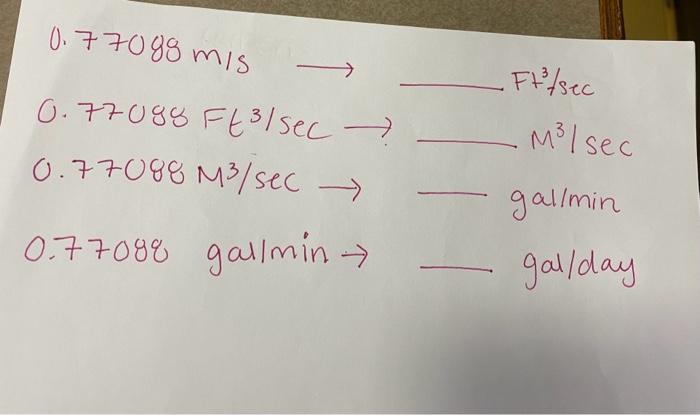 0.77088 m/s → ____ Ft³/sec
0.77088 Ft³/sec → ____ M³/sec
0.77088 M³/sec → ____ gal/min
0.77088 gal/min → ____ gal/day